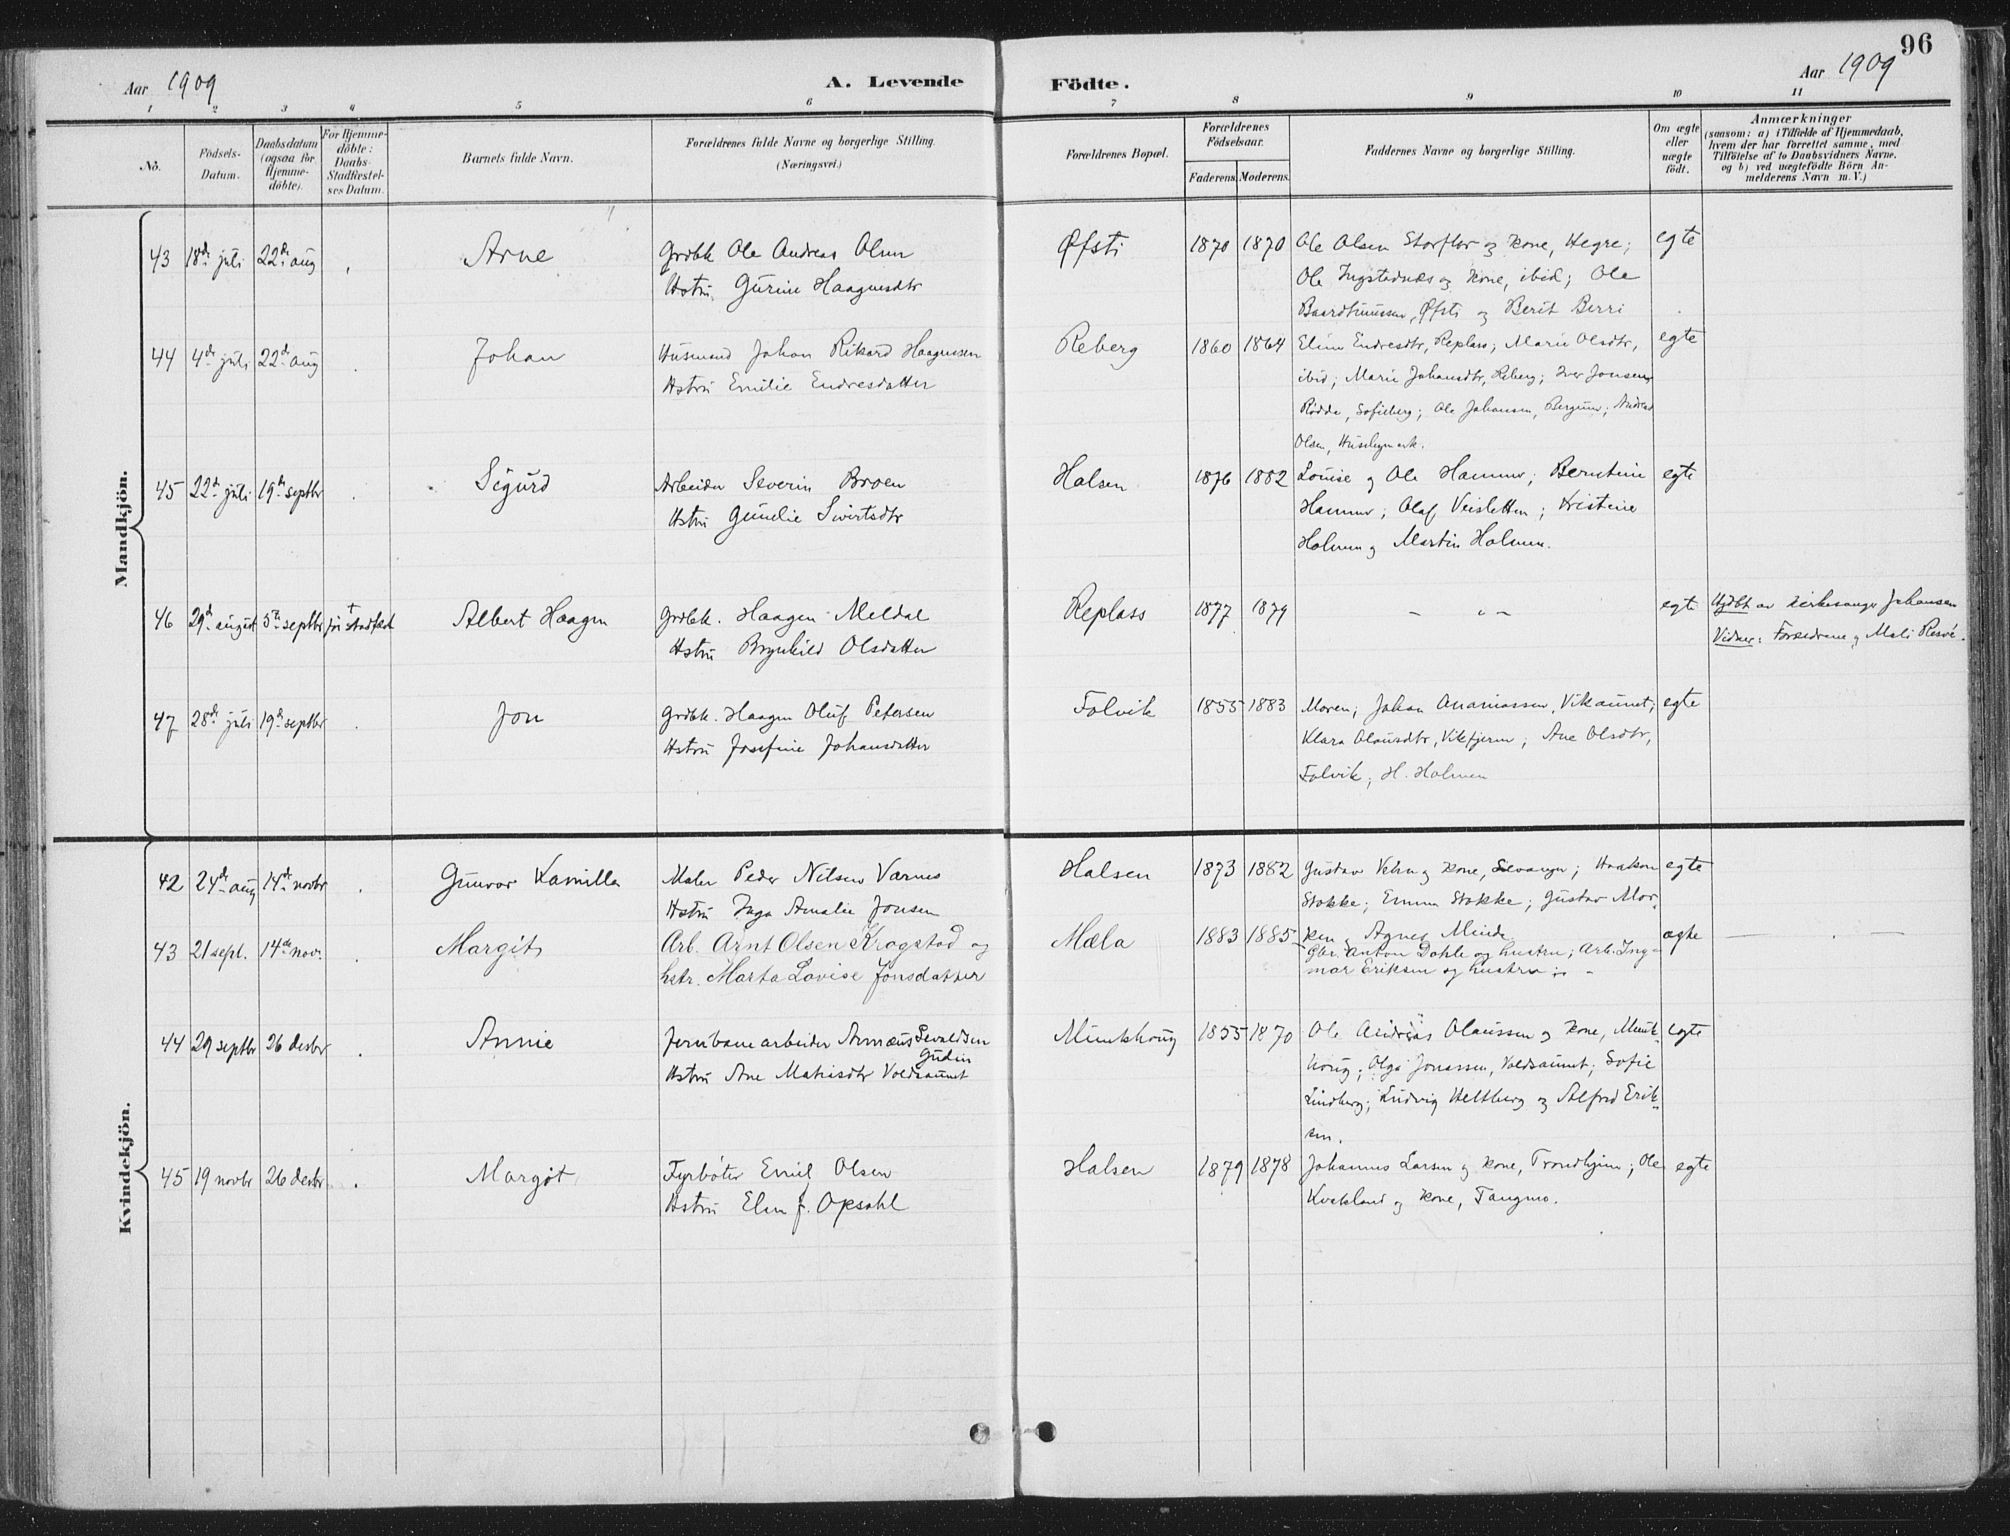 96
Aar 1909
A. Levende Födte.
Aar 1909
1 2 3 4 5 6 7 8 9 10 11
No.
Födsels-Datum.
Daabsdatum (ogsaa for Hjemme-döbte).
For Hjemme-döbte: Daabs-Stadfæstel-ses Datum.
Barnets fulde Navn.
Forældrenes fulde Navne og borgerlige Stilling. (Næringsvei.)
Forældrenes Bopæl.
Forældrenes Födselsaar.
Faderens. Moderens.
Faddernes Navne og borgerlige Stilling.
Om ægte eller uægte födt.
Anmærkninger
(saasom: a) i Tilfælde af Hjemmedaab,
hvem der har forrettet samme, med
Tilföielse af to Daabsvidners Navne.
og b) ved uægtefödte Börn An-
melderens Navn m. V.)
Mandkjön.
43 18de juli 22de aug Arne Grdbk Ole Andreas Olsen Øfsti 1870 1870 Ole Olsen Storflor og kone, Hegre; egte
Hstru Gurine Haagensdtr Ole Ingstadnæs og kone, ibid; Ole
Baardtsunessen, Øfsti og Berit Berri
44 4de juli 22de aug Johan Husmand Johan Rikard Haagensen Reberg 1860 1864 Eline Endresdtr, Replass; Marie Olsdtr, egte
Hstru Emilie Endresdatter ibid; Marie Johansdtr, Reberg; Iver Jonsen
Rødde, Sofieberg; Ole Johansen, Bergum; Andreas
Olsen, Husbymark.
45 22de juli 19de septbr Sigurd Arbeider Severin Broen Halsen 1876 1882 Louise og Ole Hammer; Berntine egte
Hstru Gunelie Sivertsdtr Hammer; Olaf Veisletten; Kristine
Holmen og Martin Holmen.
46 29de august 5te septbr Albert Haagen Grdbk. Haagen Meldal Replass 1877 1879 – " – egte Hjdbt av kirkesanger Johansen
Hstru Brynhild Olsdatter Vidner: Forældrene og Mali Resvé.
47 28de juli 19de septbr Jon Grdbk. Haagen Oluf Petersen Folvik 1855 1883 Moren; Johan Ananiassen, Vikaunet; egte
Hstru Josefine Johansdatter Klara Olausdtr, Vikfjerm; Ane Olsdtr,
Folvik; H. Holmen
Kvindekjön.
42 24de aug 14de novbr Gunvor Kamilla Maler Peder Nilsen Værnes Halsen 1873 1882 Gustav Vehn og kone, Levanger; Haakon egte
Hstru Inga Amalie Jonsen Stokke; Emma Stokke; Gustav Mor-
43 21 sept. 14de nov. Margit Arb. Arnt Olsen Krogstad og Mæla 1883 1885 ken og Agnes Minde. ægte
hstr. Marta Lovise Jonsdatter Gbr. Anton Dahle og hustru; Arb. Ing-
mar Eriksen og hustru
44 29 septbr 26 desbr Annie Jernbanearbeider Annæus Sevaldsen Munkhoug 1855 1870 Ole Andreas Olaussen og kone, Munk- egte
Gudin
Hstru Ane Matisdtr Voldsaunet houg; Olga Jonassen, Voldsaunet; Sofie
Lindberg; Ludvig Heltberg og Alfred Erik-
sen.
45 19 novbr 26 desbr Margot Fyrbøter Emil Olsen Halsen 1879 1878 Johannes Larsen og kone, Trondhjem; Ole egte
Hstru Elen f. Opsahl Kvekland og kone, Tangmo.